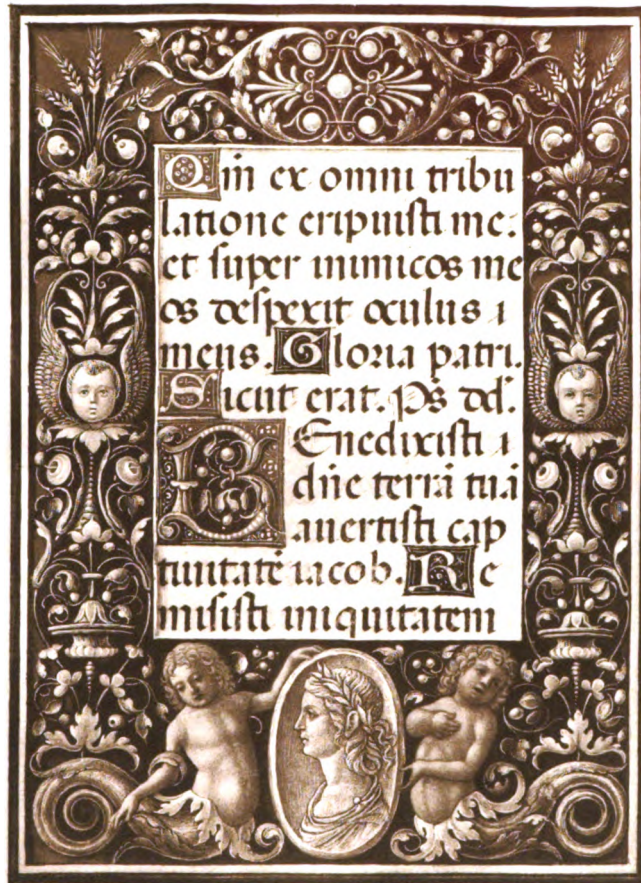 Qm̄ ex omni tribu
latione eripuisti me:
et super inimicos me
os despexit oculus
meus. Gloria patri.
Sicut erat. Ps dd̄.
BEnedixisti
dn̄e terrā tuā
auertisti cap
tiuitatē iacob. Re
misisti iniquitatem